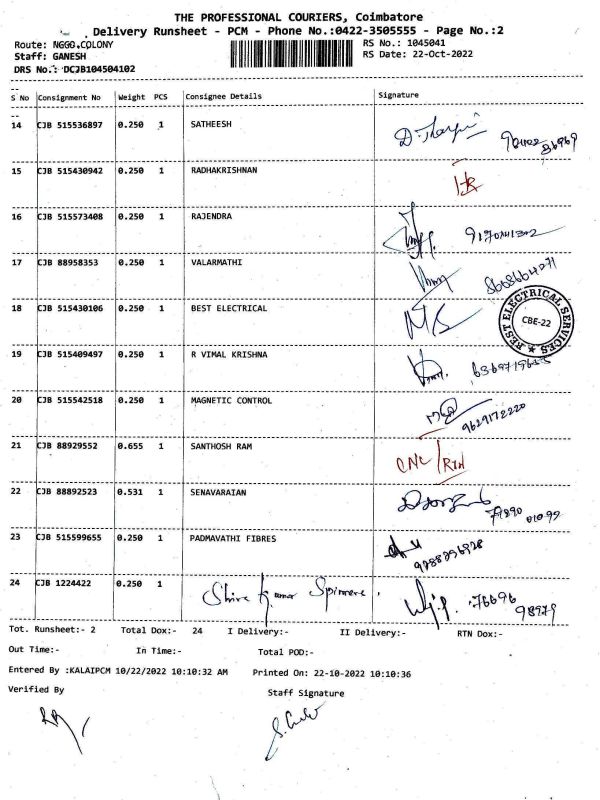 THE PROFESSIONAL COURIERS, Coimbatore
Delivery Runsheet - PCM - Phone No.:0422-3505555 - Page No.:2
Route: NGGO.COLONY RS No.: 1045041
Staff: GANESH RS Date: 22-Oct-2022
DRS No.: DCJB104504102
S No Consignment No Weight PCS Consignee Details Signature
14 CJB 515536897 0.250 1 SATHEESH
15 CJB 515430942 0.250 1 RADHAKRISHNAN
16 CJB 515573408 0.250 1 RAJENDRA
17 CJB 88958353 0.250 1 VALARMATHI 8668664271
18 CJB 515430106 0.250 1 BEST ELECTRICAL
BEST ELECTRICAL SERVICES
CBE-22
19 CJB 515409497 0.250 1 R VIMAL KRISHNA
20 CJB 515542518 0.250 1 MAGNETIC CONTROL 9629172220
21 CJB 88929552 0.655 1 SANTHOSH RAM CNC/RTN
22 CJB 88892523 0.531 1 SENAVARAIAN 71890 01099
23 CJB 515599655 0.250 1 PADMAVATHI FIBRES
24 CJB 1224422 0.250 1 Shiva Kumar Spinners 76696 98979
Tot. Runsheet:- 2 Total Dox:- 24 I Delivery:- II Delivery:- RTN Dox:-
Out Time:- In Time:- Total POD:-
Entered By :KALAIPCM 10/22/2022 10:10:32 AM Printed On: 22-10-2022 10:10:36
Verified By Staff Signature